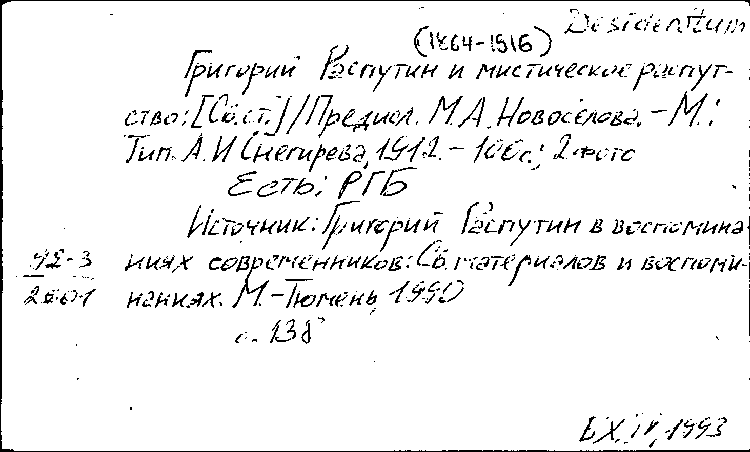 Desiderattum
(1864-1916)
Григорий Распутин и мистическое распут-
ство: [Сб. ст.] / Предисл. М.А. Новоселова. - М.:
Тип. А.И Снегирева, 1912. - 100с.; 2 фото
Есть: РГБ
Источник: Григорий Распутин в воспомина-
ниях современников: Сб. материалов и воспоми-
наниях. М. - Тюмень, 1990
с. 138
92-3
2601
БХ, IV, 1993